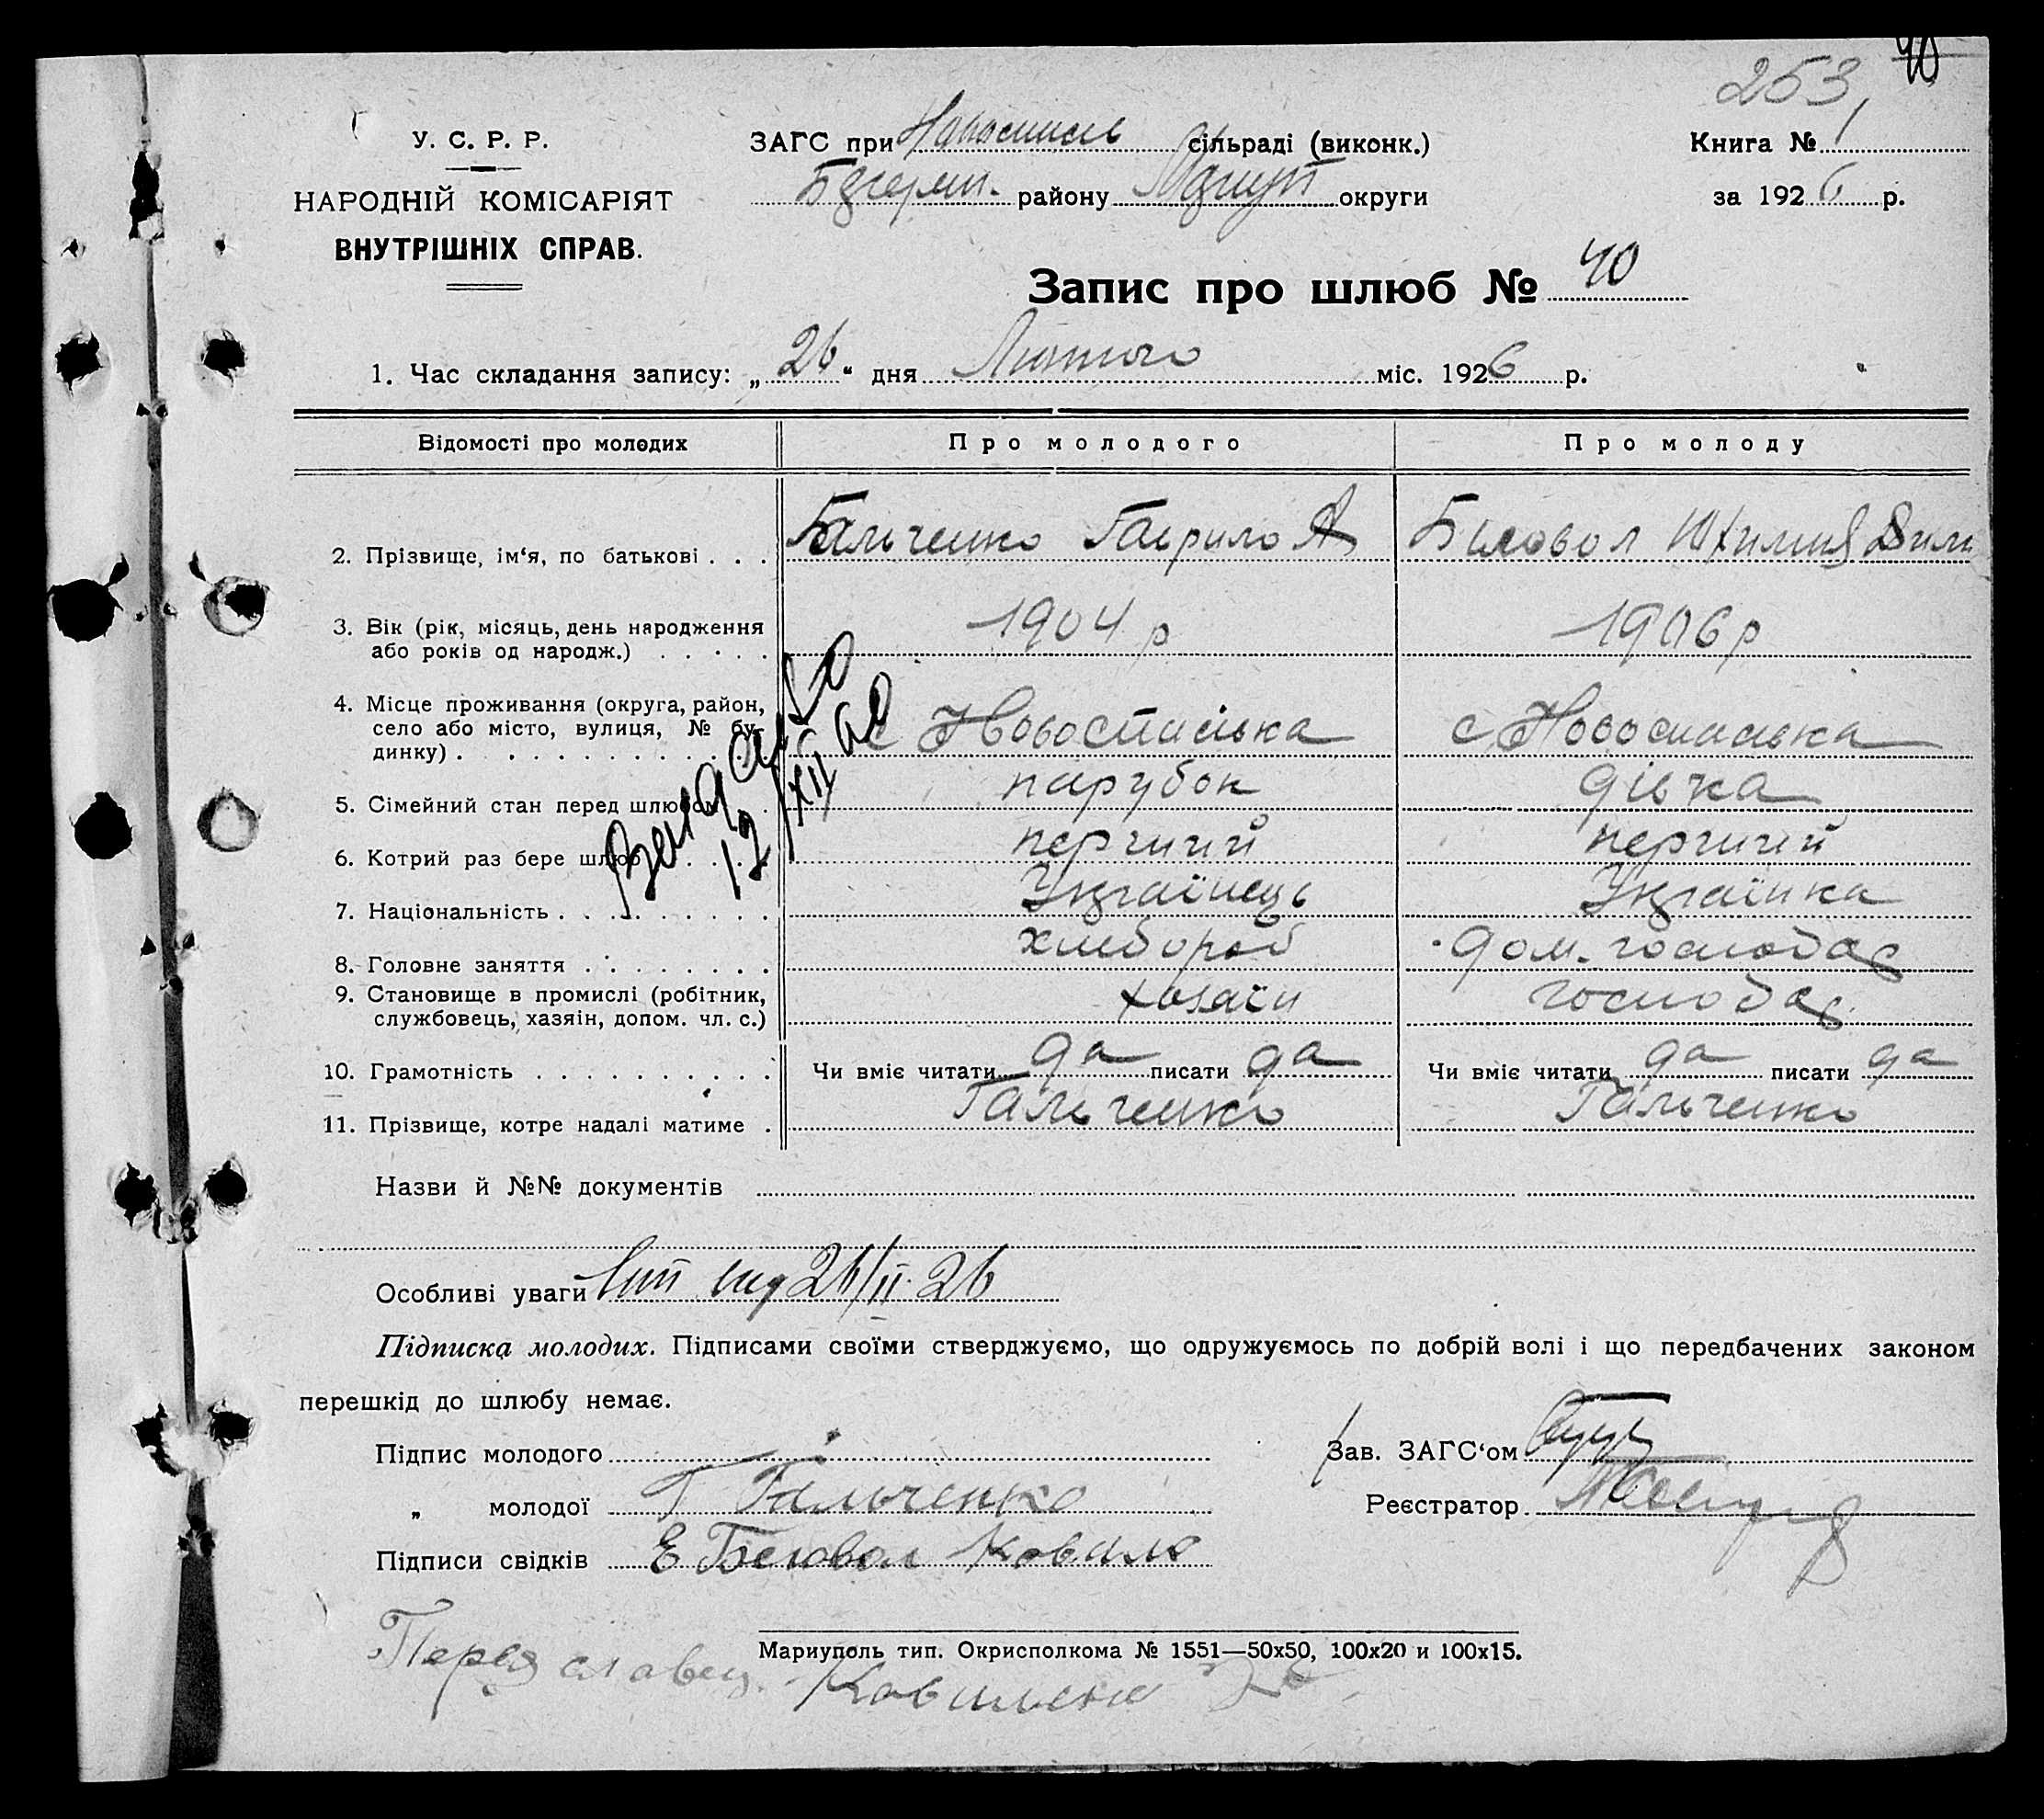 253, 40
У. С. Р. Р.
ЗАГС при Новоспась сільраді (виконк.)
Книга № 1
НАРОДНІЙ КОМІСАРІЯТ
району округи
за 1926 р.
ВНУТРІШНІХ СПРАВ.
Запис про шлюб № 40
1. Час складання запису: „26“ дня Лютого міс. 1926 р.
Відомості про молодих
Про молодого
Про молоду
2. Прізвище, ім‘я, по батькові . . . Гальченко Гаврило А Биловол
3. Вік (рік, місяць, день народження
або років од народж.) . . . . . 1904 р 1906 р
4. Місце проживання (округа, район,
село або місто, вулиця, № бу-
динку) . . . . . . . . . . . с Новоспаська с. Новоспаська
5. Сімейний стан перед шлюбом . парубок дівка
6. Котрий раз бере шлюб . . . . перший перший
7. Національність . . . . . . . . . Українець Українка
8. Головне заняття . . . . . . . . хлебороб дом. господар
9. Становище в промислі (робітник,
службовець, хазяін, допом. чл. с.) хозяін господар.
10. Грамотність . . . . . . . . . . Чи вміє читати да писати да Чи вміє читати да писати да
11. Прізвище, котре надалі матиме . Гальченко Гальченко
12/XII
Назви й №№ документів
Особливі уваги 26/II-26
Підписка молодих. Підписами своїми стверджуємо, що одружуємось по добрій волі і що передбачених законом
перешкід до шлюбу немає.
Підпис молодого
Зав. ЗАГС‘ом
„ молодої Г Гальченко
Реєстратор
Підписи свідків Е Беловол Коваль
Мариуполь тип. Окрисполкома № 1551—50х50, 100х20 и 100х15.